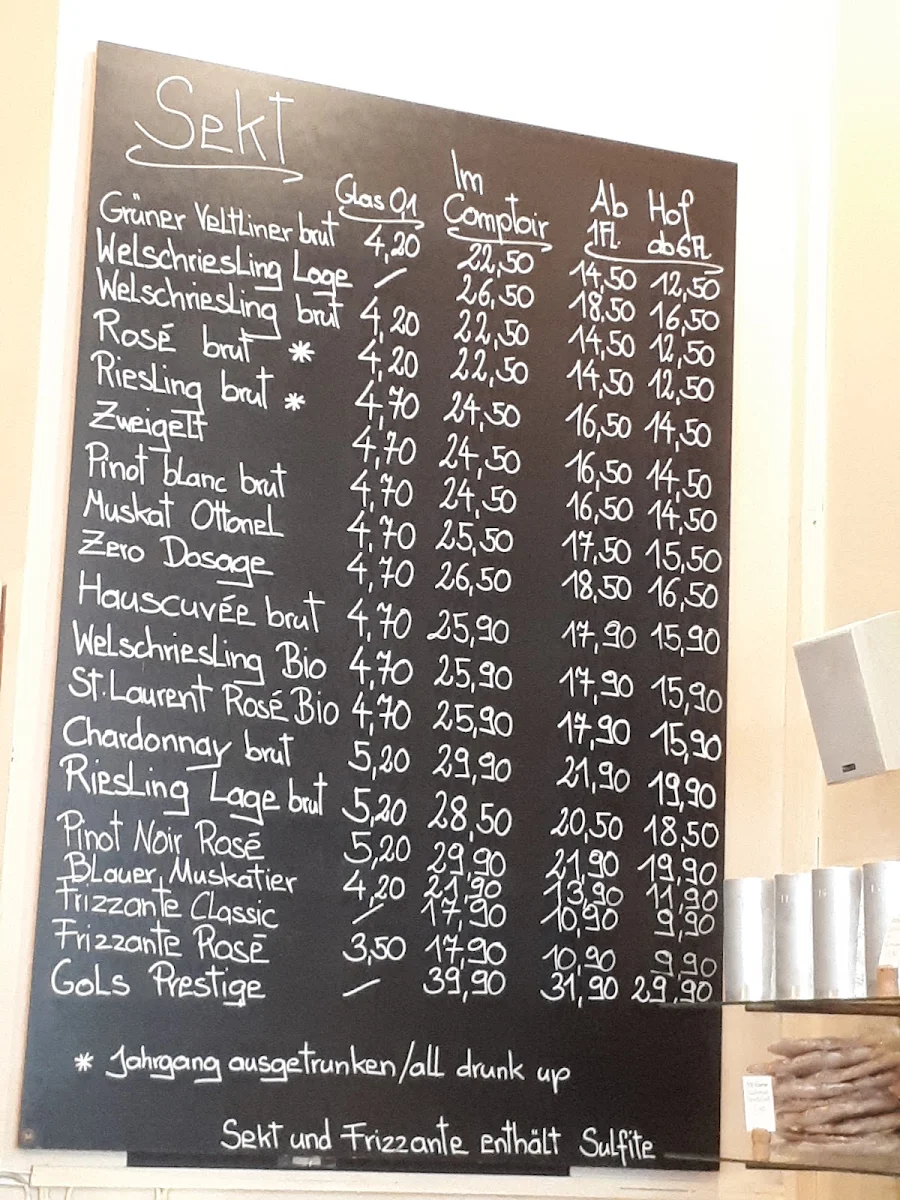 Sekt
Glas 0,1 Im Comptoir Ab Hof
1Fl. ab 6 Fl
Grüner Veltliner brut 4,20 22,50 14,50 12,50
Welschriesling Lage / 26,50 18,50 16,50
Welschriesling brut 4,20 22,50 14,50 12,50
Rosé brut * 4,20 22,50 14,50 12,50
Riesling brut * 4,70 24,50 16,50 14,50
Zweigelt 4,70 24,50 16,50 14,50
Pinot blanc brut 4,70 24,50 16,50 14,50
Muskat Ottonel 4,70 25,50 17,50 15,50
Zero Dosage 4,70 26,50 18,50 16,50
Hauscuvée brut 4,70 25,90 17,90 15,90
Welschriesling Bio 4,70 25,90 17,90 15,90
St. Laurent Rosé Bio 4,70 25,90 17,90 15,90
Chardonnay brut 5,20 29,90 21,90 19,90
Riesling Lage brut 5,20 28,50 20,50 18,50
Pinot Noir Rosé 5,20 29,90 21,90 19,90
Blauer Muskatier 4,20 21,90 13,90 11,90
Frizzante Classic / 17,90 10,90 9,90
Frizzante Rosé 3,50 17,90 10,90 9,90
Gols Prestige / 39,90 31,90 29,90
* Jahrgang ausgetrunken/all drunk up
Sekt und Frizzante enthält Sulfite